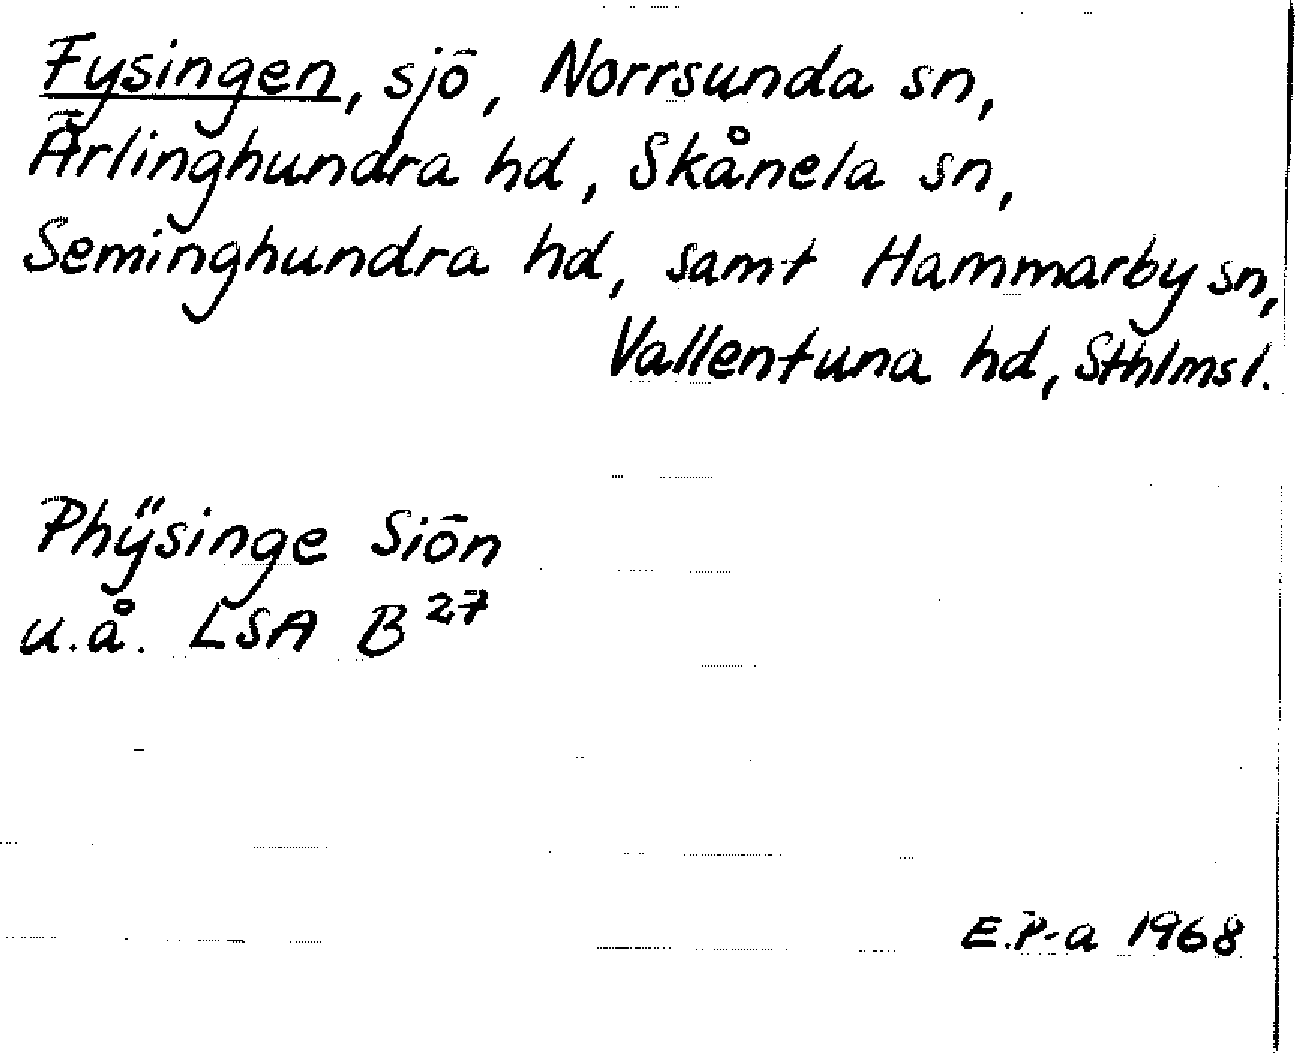 Fysingen, sjö, Norrsunda sn,
Ärlinghundra hd, Skånela sn,
Seminghundra hd, samt Hammarby sn,
Vallentuna hd, Sthlmsl.
Phÿsinge Siön
u.å. LSA B 27
E.P-a 1968